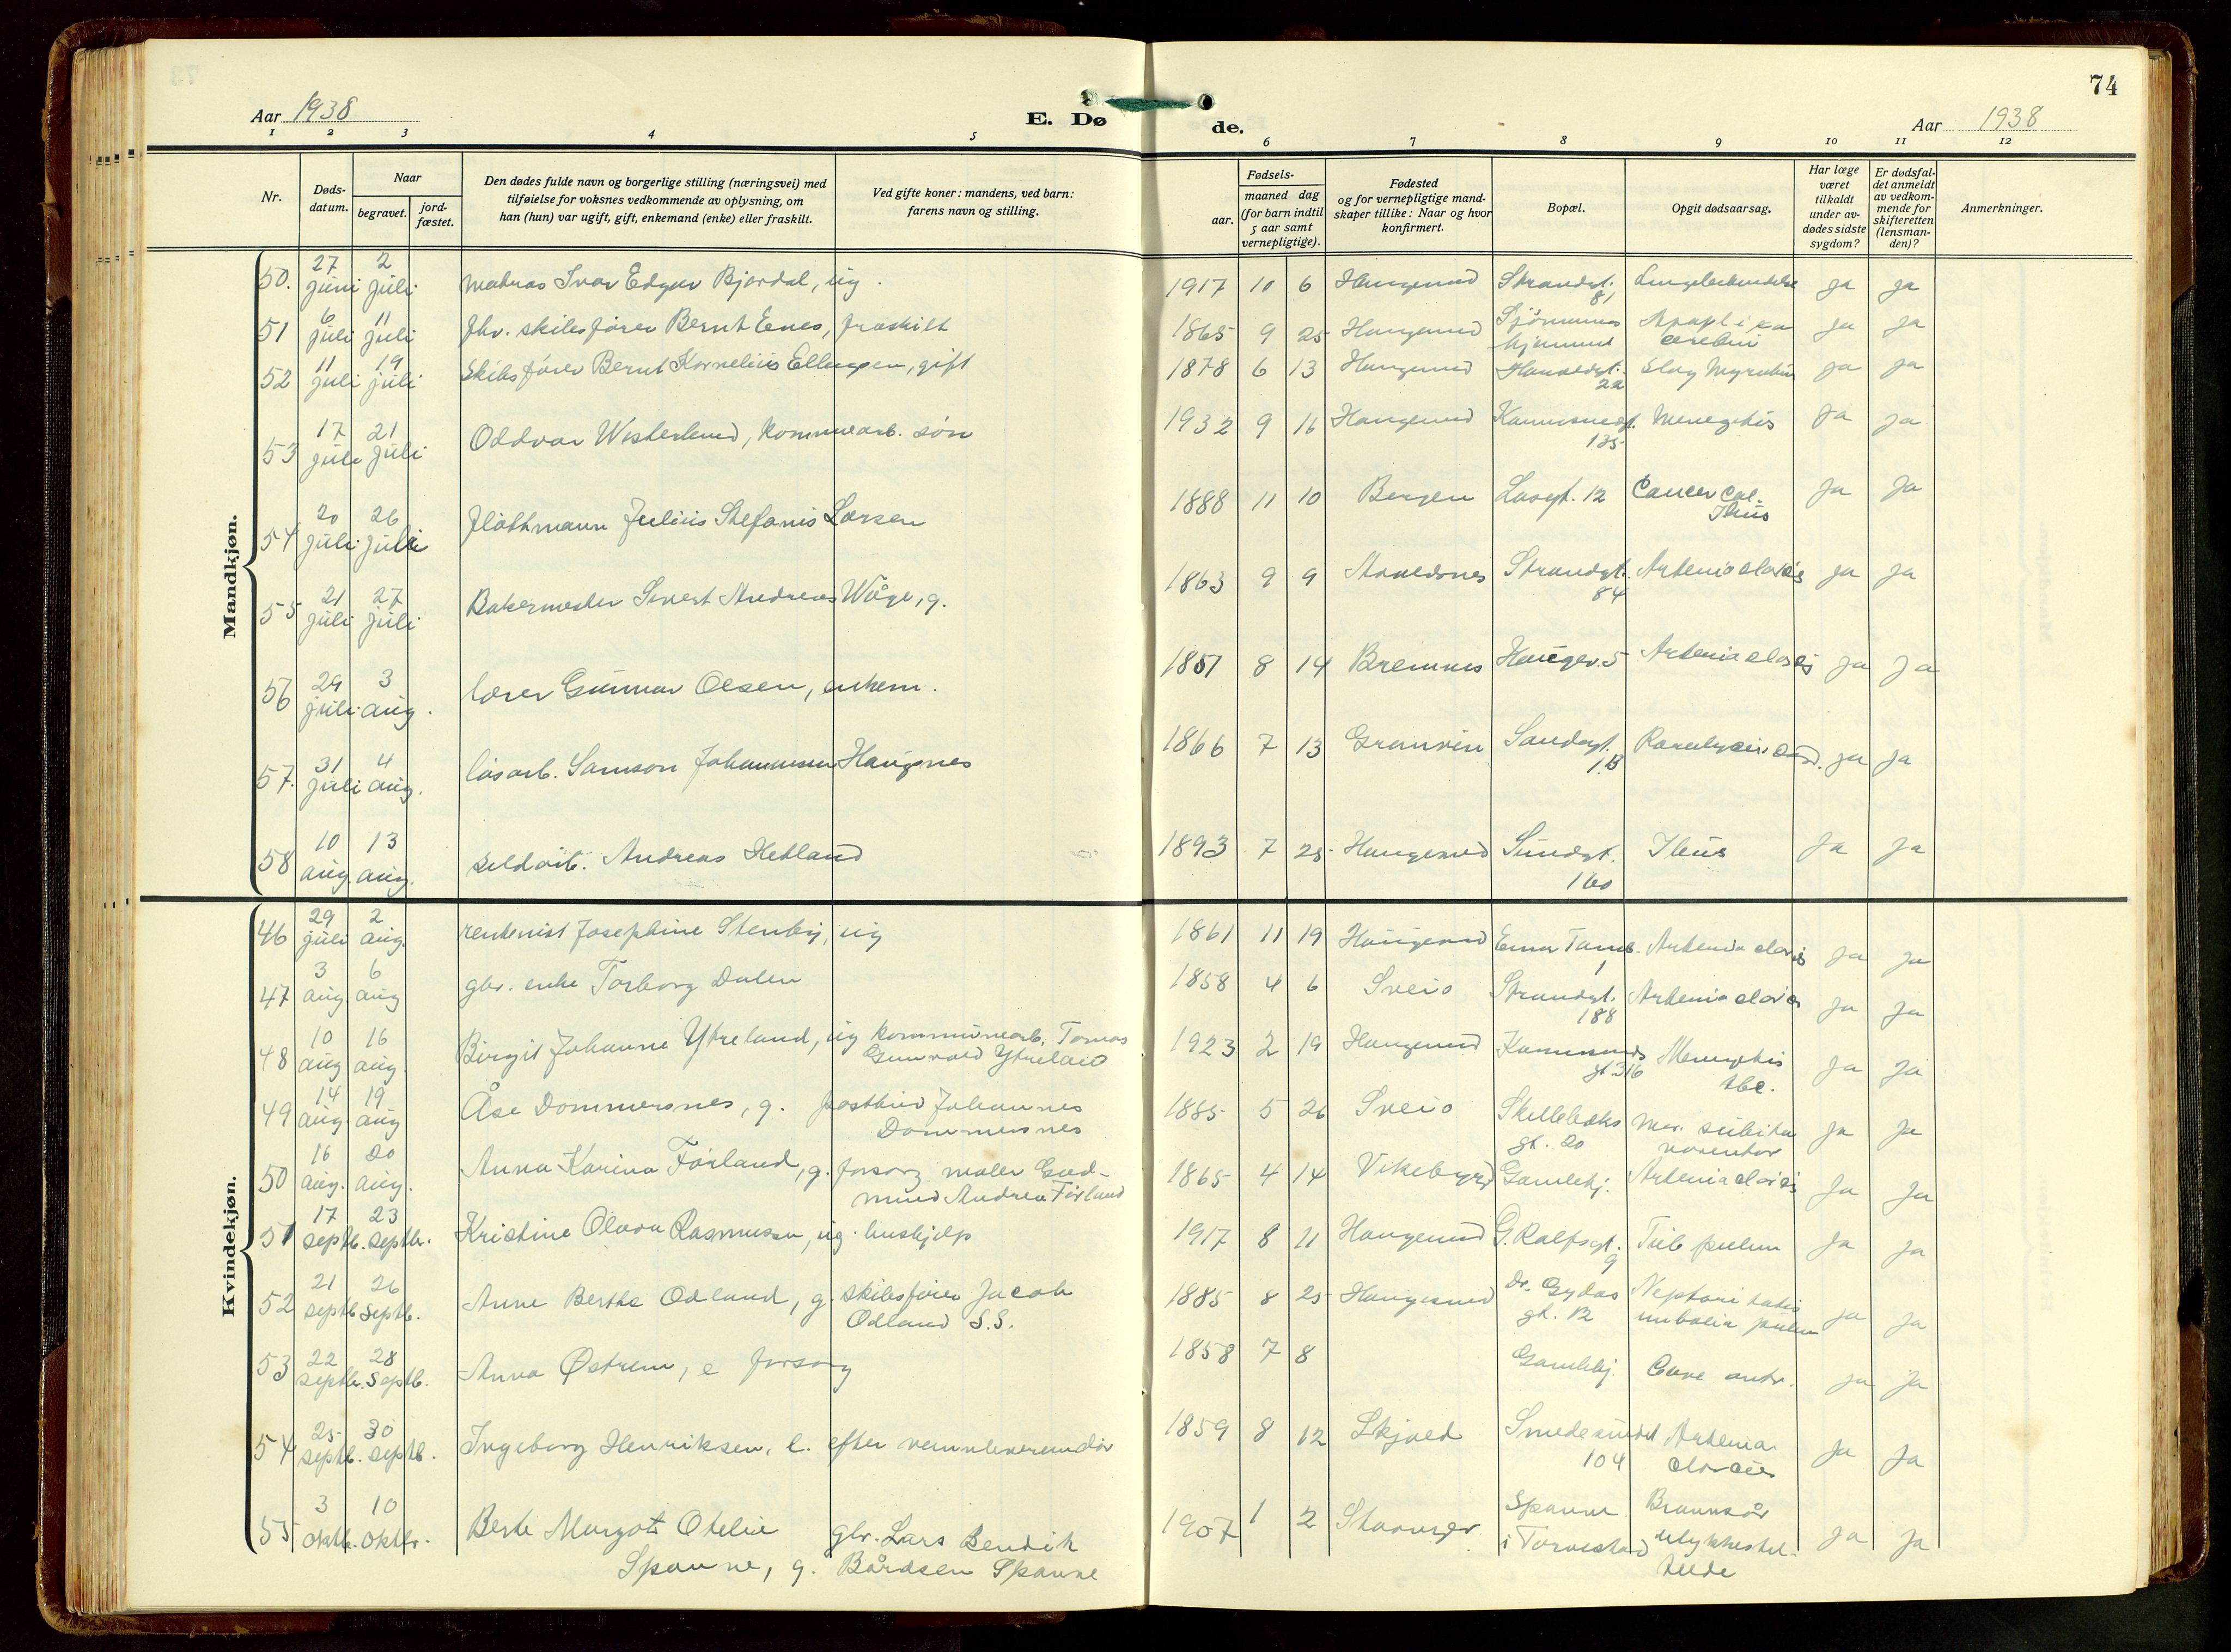 74
Aar 1938
E. Døde.
Aar 1938
1 2 3 4 5 6 7 8 9 10 11 12
Nr.
Døds-datum.
Naar
begravet.
jord-fæstet.
Den dødes fulde navn og borgerlige stilling (næringsvei) med
tilføielse for voksnes vedkommende av oplysning, om
han (hun) var ugift, gift, enkemand (enke) eller fraskilt.
Ved gifte koner: mandens, ved barn:
farens navn og stilling.
Fødsels-
aar.
maaned dag
(for barn indtil
5 aar samt
vernepligtige).
Fødested
og for vernepligtige mand-
skaper tillike: Naar og hvor
konfirmert.
Bopæl.
Opgit dødsaarsag.
Har læge
været
tilkaldt
under av-
dødes sidste
sygdom?
Er dødsfal-
det anmeldt
av vedkom-
mende for
skifteretten
(lensman-
den)?
Anmerkninger.
Mandkjøn.
50. 27 juni 2 juli matros Ivar Edgar Bjordal, ug. 1917 10 6 Haugesund Strandgt. 81 Lungebetendelse ja ja
51 6 juli 11 juli fhv. skibsfører Bernt Eenes, fraskilt 1865 9 25 Haugesund Sjømannshjemmet Apoplexia cerebri ja ja
52 11 juli 19 juli Skibsfører Bernt Kornelius Ellingsen, gift 1878 6 13 Haugesund Haraldsgt. 22 ja ja
53 17 juli 21 juli Oddvar Westerlund, kommunearb. søn 1932 9 16 Haugesund Karmsundgt. 135 Menegitis ja ja
54 20 juli 26 juli Flåttmann Julius Stefanis Larsen 1888 11 10 Bergen 12 Cancer col. Ileus ja ja
55 21 juli 27 juli Bakermester Sivert Andreas Våge, g. 1863 9 9 Avaldsnes Strandgt. 84 Arteriosclorosis ja ja
56 29 juli 3 aug. lærer Gunnar Olsen, enkem. 1851 8 14 Bremnes Haugev. 5 Arteriosclorosis ja ja
57. 31 juli 4 aug. løsarb. Samson Johannessen Haugsnes 1866 7 13 Granvin Sandagt. 1B Paralysis card. ja ja
58 10 aug. 13 aug. sildarb. Andreas Hetland 1893 7 25 Haugesund Sundgt. 160 Ileus ja ja
Kvindekjøn.
46 29 juli 2 aug. rentenist Josephine Stenby, ug 1861 11 19 Haugesund 1 Arteriosclorosis ja ja
47 3 aug. 6 aug gbr. enke Torborg Dalen 1858 4 6 Sveio Strandgt. 188 Arteriosclorosis ja ja
48 10 aug 16 aug. Birgit Johanne Ytreland, ug kommunearb. Tomas Gunvald Ytreland 1923 2 19 Haugesund Karmsundsgt. 316 Menegitis tbc. ja ja
49 14 aug. 19 aug Åse Dommersnes, g. postbud Johannes Dommersnes 1885 5 26 Sveio Skillebæksgt. 20 Mors subita ja ja
50 16 aug. 20 aug. Anna Karina Førland, g. forsorg maler Gudmund Andreas Førland 1865 4 14 Vikebygd Gamlehj. Arteriosclorosis ja ja
51 17 septb. 23 septbr. Kristine Olava Rasmussen, ug. hushjelp 1917 8 11 Haugesund G. Rolfsgt. 9 Tub pulm ja ja
52 21 septb. 26 septb. Anne Berthe Odland, g. skibsfører Jacob Odland S.S. 1885 8 25 Haugesund Dr. Gydas gt. 12 ja ja
53 22 septbr. 28 septb. Anna Østrem, e forsorg 1858 7 8 Gamlehj. ja ja
54 25 septb. 30 septb. Ingeborg Henriksen, e. efter 1859 8 12 Skjold Smedesundet 104 Arteriosclorosis ja ja
55 3 oktb. 10 oktbr. Berte Margot Otelie Spanne, g. gbr. Lars Bendik Bårdsen Spanne 1907 1 2 Stavanger Spanne i Torvestad Brannsår ulykkestilfelde ja ja